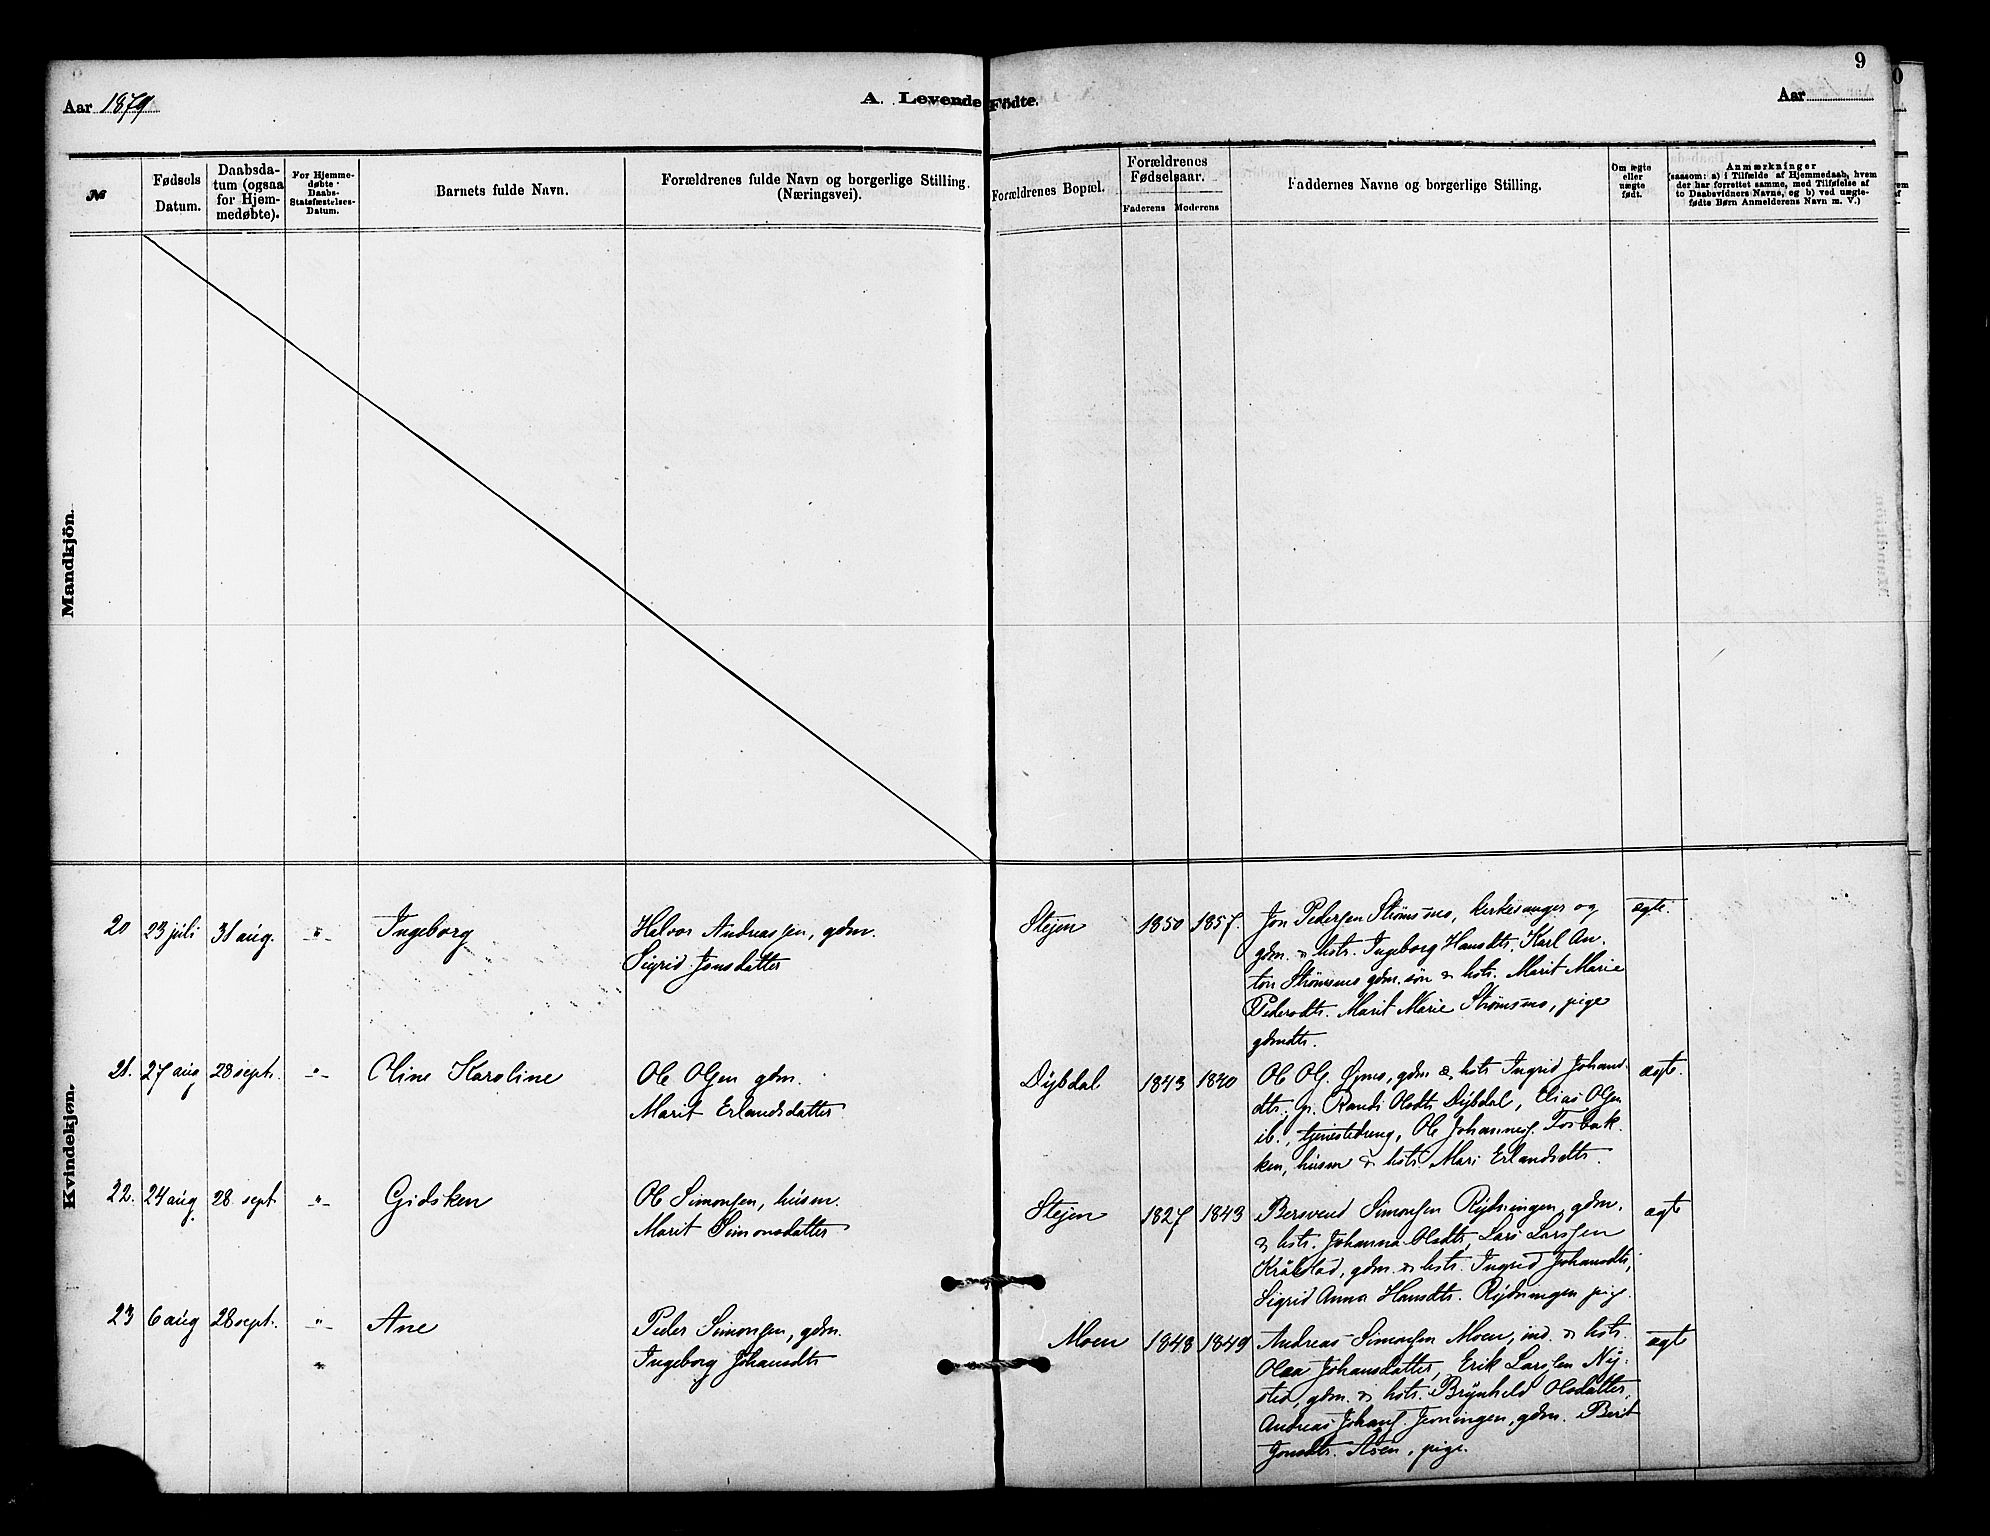 9
Aar 1879
A. Levende Fødte.
Aar
№
Fødsels Datum.
Daabsdatum (ogsaa for Hjemmedøbte).
For Hjemmedøbte Daabs-Statsfæstelses-Datum.
Barnets fulde Navn.
Forældrenes fulde Navn og borgerlige Stilling. (Næringsvei).
Forældrenes Bopæl.
Forældrenes Fødselsaar.
Faderens Moderens
Faddernes Navne og borgerlige Stilling.
Om ægte eller uægte født.
Anmærkninger
(saasom: a) i Tilfælde af Hjemmedaab, hvem
der har forrettet samme, med Tilføielse af
to Daabsvidners Navne, og b) ved uægte-
fødte Børn Anmelderens Navn m. V.)
Mandkjön.
Kvindekjøn.
20 23 juli 31 aug. -"- Ingeborg
Halvor Andreassen, gdm.
Sigrid Jonsdatter
Stejen 1850 1857.
Jon Pedersen Strømsmo, kirkesanger og
gdm. & hst. Ingeborg Hansdtr. Karl An-
ton Strømsmo gdm. søn & hst. Marit Marie
Pedersdtr. Marit Marie Strømsmo, pige
gdmdtr.
ægte.
21. 27 aug 28 sept. -"- Oline Karoline
Ole Olsen gdm.
Marit Erlandsdatter
Dybdal 1843 1840
Ole Ols. Øjmo, gdm & hst Ingrid Johans-
dtr. p. Randi Olsdtr Dybdal, Elias Olsen
ib., tjenestedreng, Ole Johannes. Forbak-
ken, husm & hst. Mari Erlandsdtr.
ægte.
22. 24 aug. 28 sept -"- Gidsken
Ole Simonsen, husm.
Marit Simonsdatter
Stejen 1827 1843
Bersvend Simonsen Rydningen, gdm.
& hst. Johanna Olsdtr, Lars Larssen
Kråkstad, gdm. & hst. Ingrid Johansdtr,
Sigrid Anna Hansdtr. Rydningen pige
ægte
23 6 aug 28 sept. -"- Ane
Peder Simonsen, gdm.
" Ingeborg Johansdtr
Moen 1848 1849
Andreas Simonsen Moen, ind. & hst.
Olea Johansdatter, Erik Larssen Ny-
sted, gdm. & hst. Brynhild Olsdatter,
Andreas Johans. Jenningen, gdm. Berit
Jonsdtr. Åsen, pige.
ægte